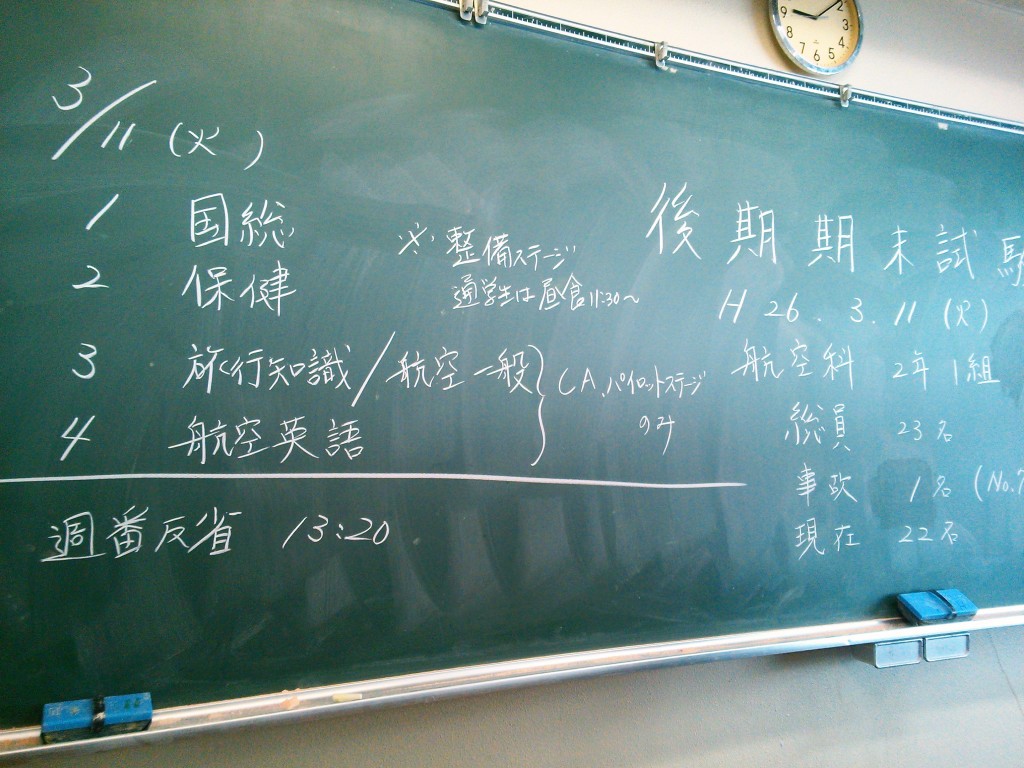 3/11 (火)
1 国総
2 保健
3 旅行知識/航空一般
4 航空英語
※ 整備ステージ
通学生は昼食11:30～
CA、パイロットステージ
のみ
週番反省 13:20
後期期末試験
H26.3.11 (火)
航空科 2年1組
総員 23名
事故 1名 (No.7
現在 22名
9
8
7
6
5
4
3